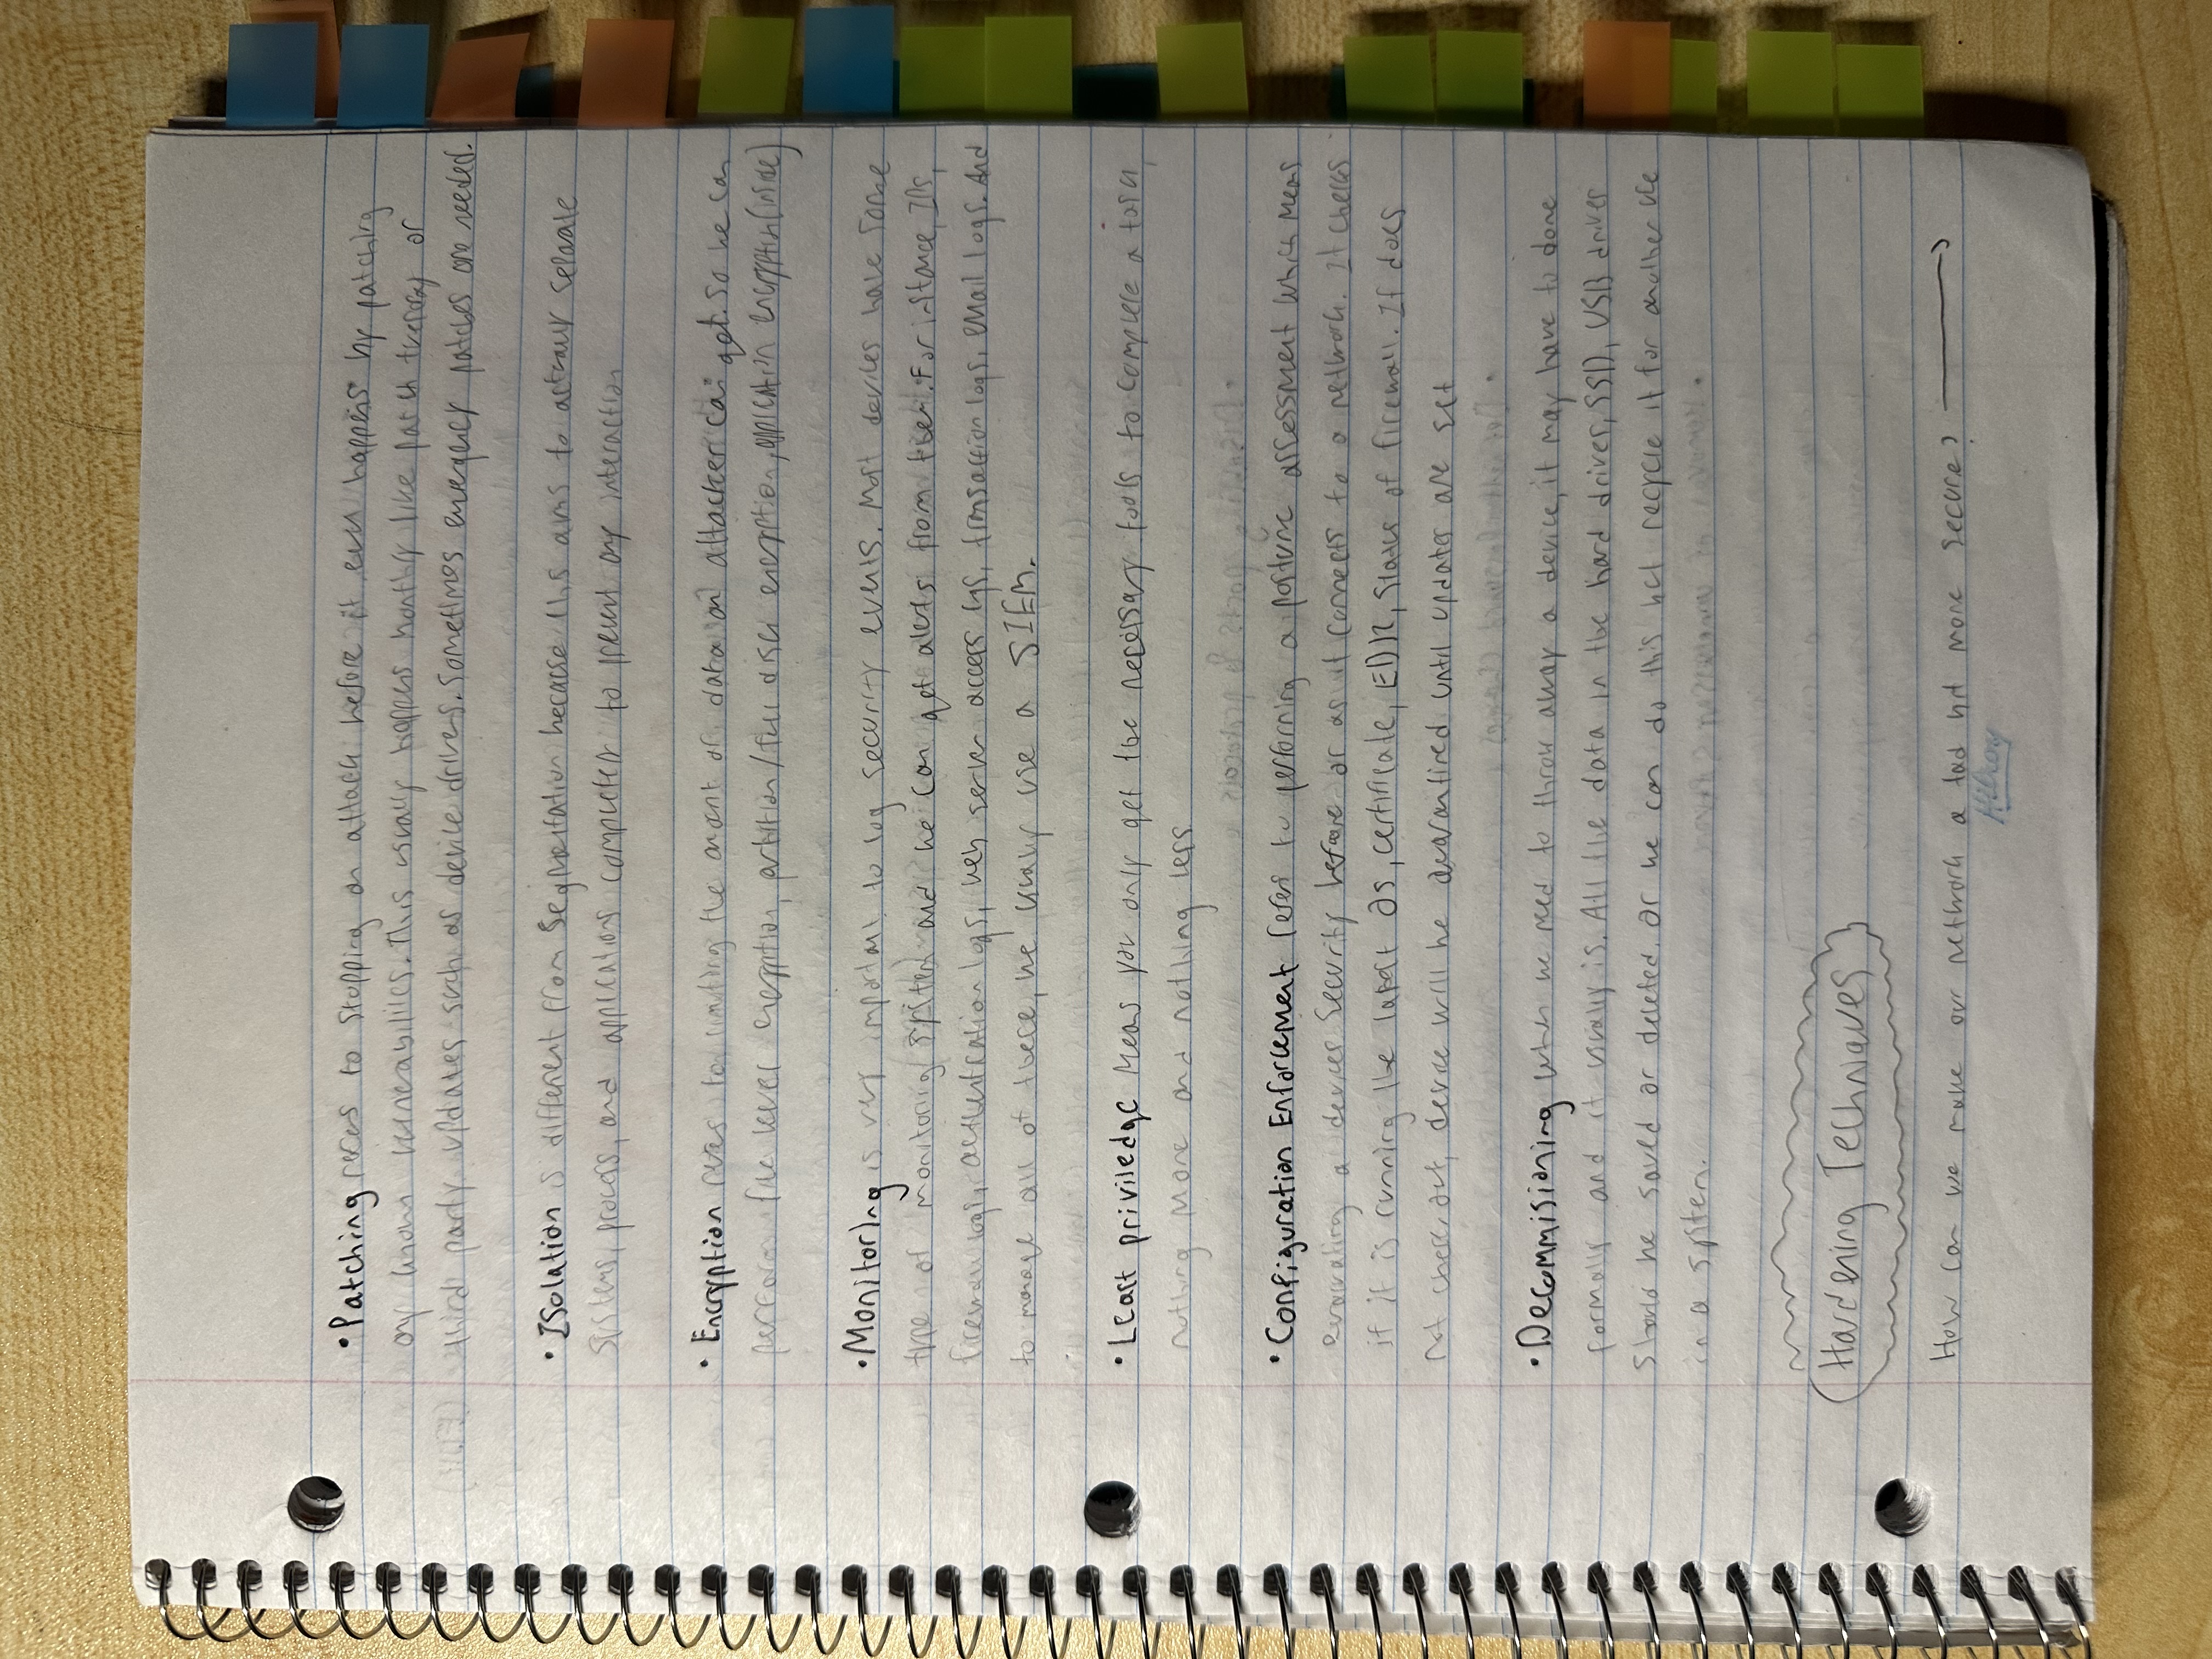 • Patching refers to stopping an attack before it even happens by patching
any known vulnerabilities. This usually happens monthly like patch tuesday or
third party updates such as device drivers. Sometimes emergency patches are needed.
• Isolation is different from Segmentation because this aims to actually separate
systems, process, and applications completely to prevent any interaction
• Encryption refers to limiting the amount of data an attacker can get. So we can
perform file level encryption, partition/full disk encryption, application encryption (inside)
• Monitoring is very important to log security events. Most devices have some
type of monitoring system and we can get alerts from them. For instance, IPS,
firewall logs, authentication logs, web server access logs, transaction logs, email logs. And
to manage all of these, we usually use a SIEM.
• Least priviledge means you only get the necessary tools to complete a task,
nothing more and nothing less
• Configuration Enforcement refers to performing a posture assessment which means
evaluating a devices security before or as it connects to a network. It checks
if it is running the latest OS, certificate, EDR, status of firewall. If does
not check out, device will be quarantined until updates are set
• Decommisioning when we need to throw away a device, it may have to done
formally and it usually is. All the data in the hard drives, SSD, USB drives
should be saved or deleted. Or we can do this but recycle it for another use
in a system.
Hardening Techniques
How can we make our network a tad bit more secure? →
Hilroy